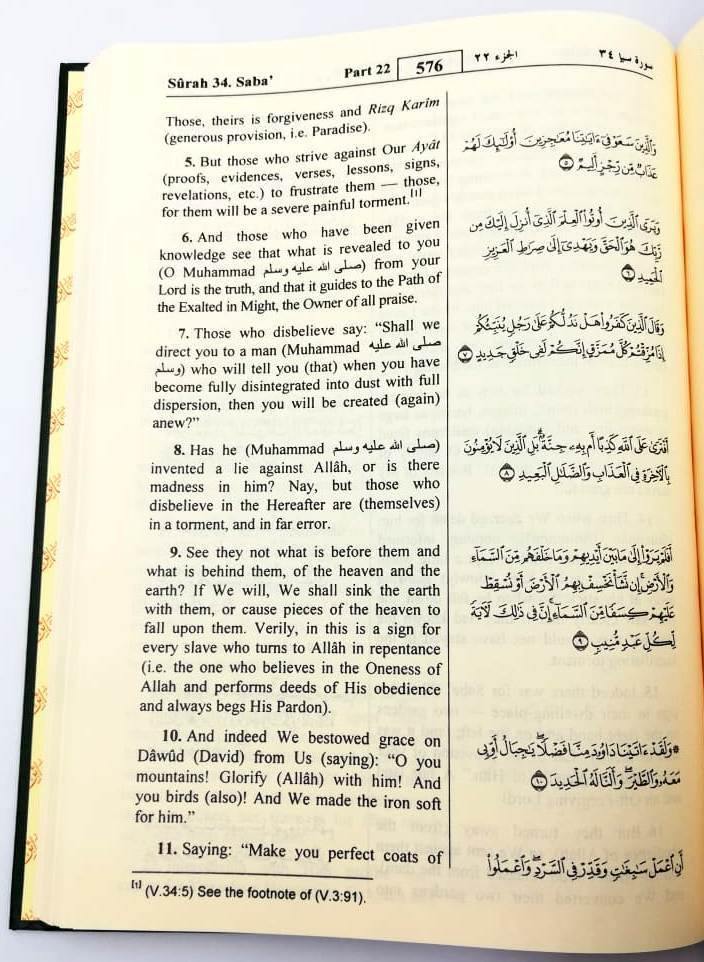 Sûrah 34. Saba’
Part 22
576
الجزء ٢٢
سورة سبإ ٣٤
Those, theirs is forgiveness and Rizq Karîm
(generous provision, i.e. Paradise).
5. But those who strive against Our Ayât
(proofs, evidences, verses, lessons, signs,
revelations, etc.) to frustrate them — those,
for them will be a severe painful torment.[1]
6. And those who have been given
knowledge see that what is revealed to you
(O Muhammad صلى الله عليه وسلم) from your
Lord is the truth, and that it guides to the Path of
the Exalted in Might, the Owner of all praise.
7. Those who disbelieve say: “Shall we
direct you to a man (Muhammad صلى الله عليه
وسلم) who will tell you (that) when you have
become fully disintegrated into dust with full
dispersion, then you will be created (again)
anew?”
8. Has he (Muhammad صلى الله عليه وسلم)
invented a lie against Allâh, or is there
madness in him? Nay, but those who
disbelieve in the Hereafter are (themselves)
in a torment, and in far error.
9. See they not what is before them and
what is behind them, of the heaven and the
earth? If We will, We shall sink the earth
with them, or cause pieces of the heaven to
fall upon them. Verily, in this is a sign for
every slave who turns to Allâh in repentance
(i.e. the one who believes in the Oneness of
Allah and performs deeds of His obedience
and always begs His Pardon).
10. And indeed We bestowed grace on
Dâwûd (David) from Us (saying): “O you
mountains! Glorify (Allâh) with him! And
you birds (also)! And We made the iron soft
for him.”
11. Saying: “Make you perfect coats of
وَٱلَّذِينَ سَعَوْ فِىٓ ءَايَٰتِنَا مُعَٰجِزِينَ أُو۟لَٰٓئِكَ لَهُمْ
عَذَابٌ مِّن رِّجْزٍ أَلِيمٌ ٥
وَيَرَى ٱلَّذِينَ أُوتُوا۟ ٱلْعِلْمَ ٱلَّذِىٓ أُنزِلَ إِلَيْكَ مِن
رَّبِّكَ هُوَ ٱلْحَقَّ وَيَهْدِىٓ إِلَىٰ صِرَٰطِ ٱلْعَزِيزِ
ٱلْحَمِيدِ ٦
وَقَالَ ٱلَّذِينَ كَفَرُوا۟ هَلْ نَدُلُّكُمْ عَلَىٰ رَجُلٍ يُنَبِّئُكُمْ
إِذَا مُزِّقْتُمْ كُلَّ مُمَزَّقٍ إِنَّكُمْ لَفِى خَلْقٍ جَدِيدٍ ٧
أَفْتَرَىٰ عَلَى ٱللَّهِ كَذِبًا أَم بِهِۦ جِنَّةٌۢ بَلِ ٱلَّذِينَ لَا يُؤْمِنُونَ
بِٱلْءَاخِرَةِ فِى ٱلْعَذَابِ وَٱلضَّلَٰلِ ٱلْبَعِيدِ ٨
أَفَلَمْ يَرَوْا۟ إِلَىٰ مَا بَيْنَ أَيْدِيهِمْ وَمَا خَلْفَهُم مِّنَ ٱلسَّمَآءِ
وَٱلْأَرْضِ إِن نَّشَأْ نَخْسِفْ بِهِمُ ٱلْأَرْضَ أَوْ نُسْقِطْ
عَلَيْهِمْ كِسَفًا مِّنَ ٱلسَّمَآءِ إِنَّ فِى ذَٰلِكَ لَءَايَةً
لِّكُلِّ عَبْدٍ مُّنِيبٍ ٩
۞ وَلَقَدْ ءَاتَيْنَا دَاوُۥدَ مِنَّا فَضْلًا يَٰجِبَالُ أَوِّبِى
مَعَهُۥ وَٱلطَّيْرَ وَأَلَنَّا لَهُ ٱلْحَدِيدَ ١٠
أَنِ ٱعْمَلْ سَٰبِغَٰتٍ وَقَدِّرْ فِى ٱلسَّرْدِ وَٱعْمَلُوا۟
[1] (V.34:5) See the footnote of (V.3:91).